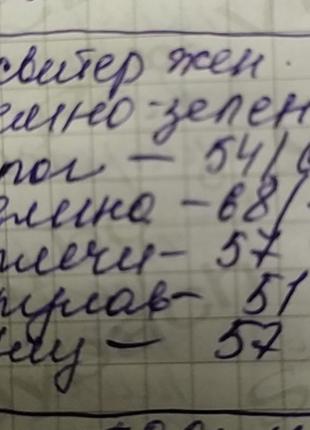 свитер жен.
емно-зелен
пог — 54/6
лина - 68/
плечи - 57
рукав - 51
низу — 57